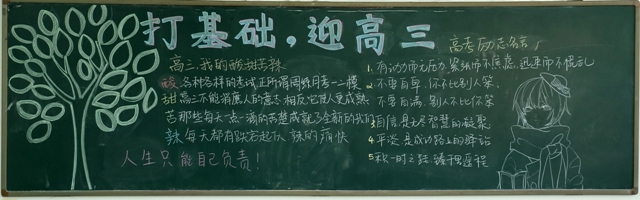 打基础，迎高三
高三，我的酸甜苦辣
酸 各种各样的考试正所谓周练月考一二模
甜 高三不能消磨人的意志 相反它使人更成熟
苦 那些每天一点一滴的苦楚成就了全新的我们
辣 每天都有 辣的痛快
人生只能自己负责！
高考励志名言
1. 有动力而无压力 紧张而不焦虑 迅速而不慌乱
2. 不要自卑，你不比别人笨。
不要自满，别人不比你笨
3 自信是无尽智慧的凝聚
4 平淡是成功路上的驿站
5 秋一时之 臻 里程